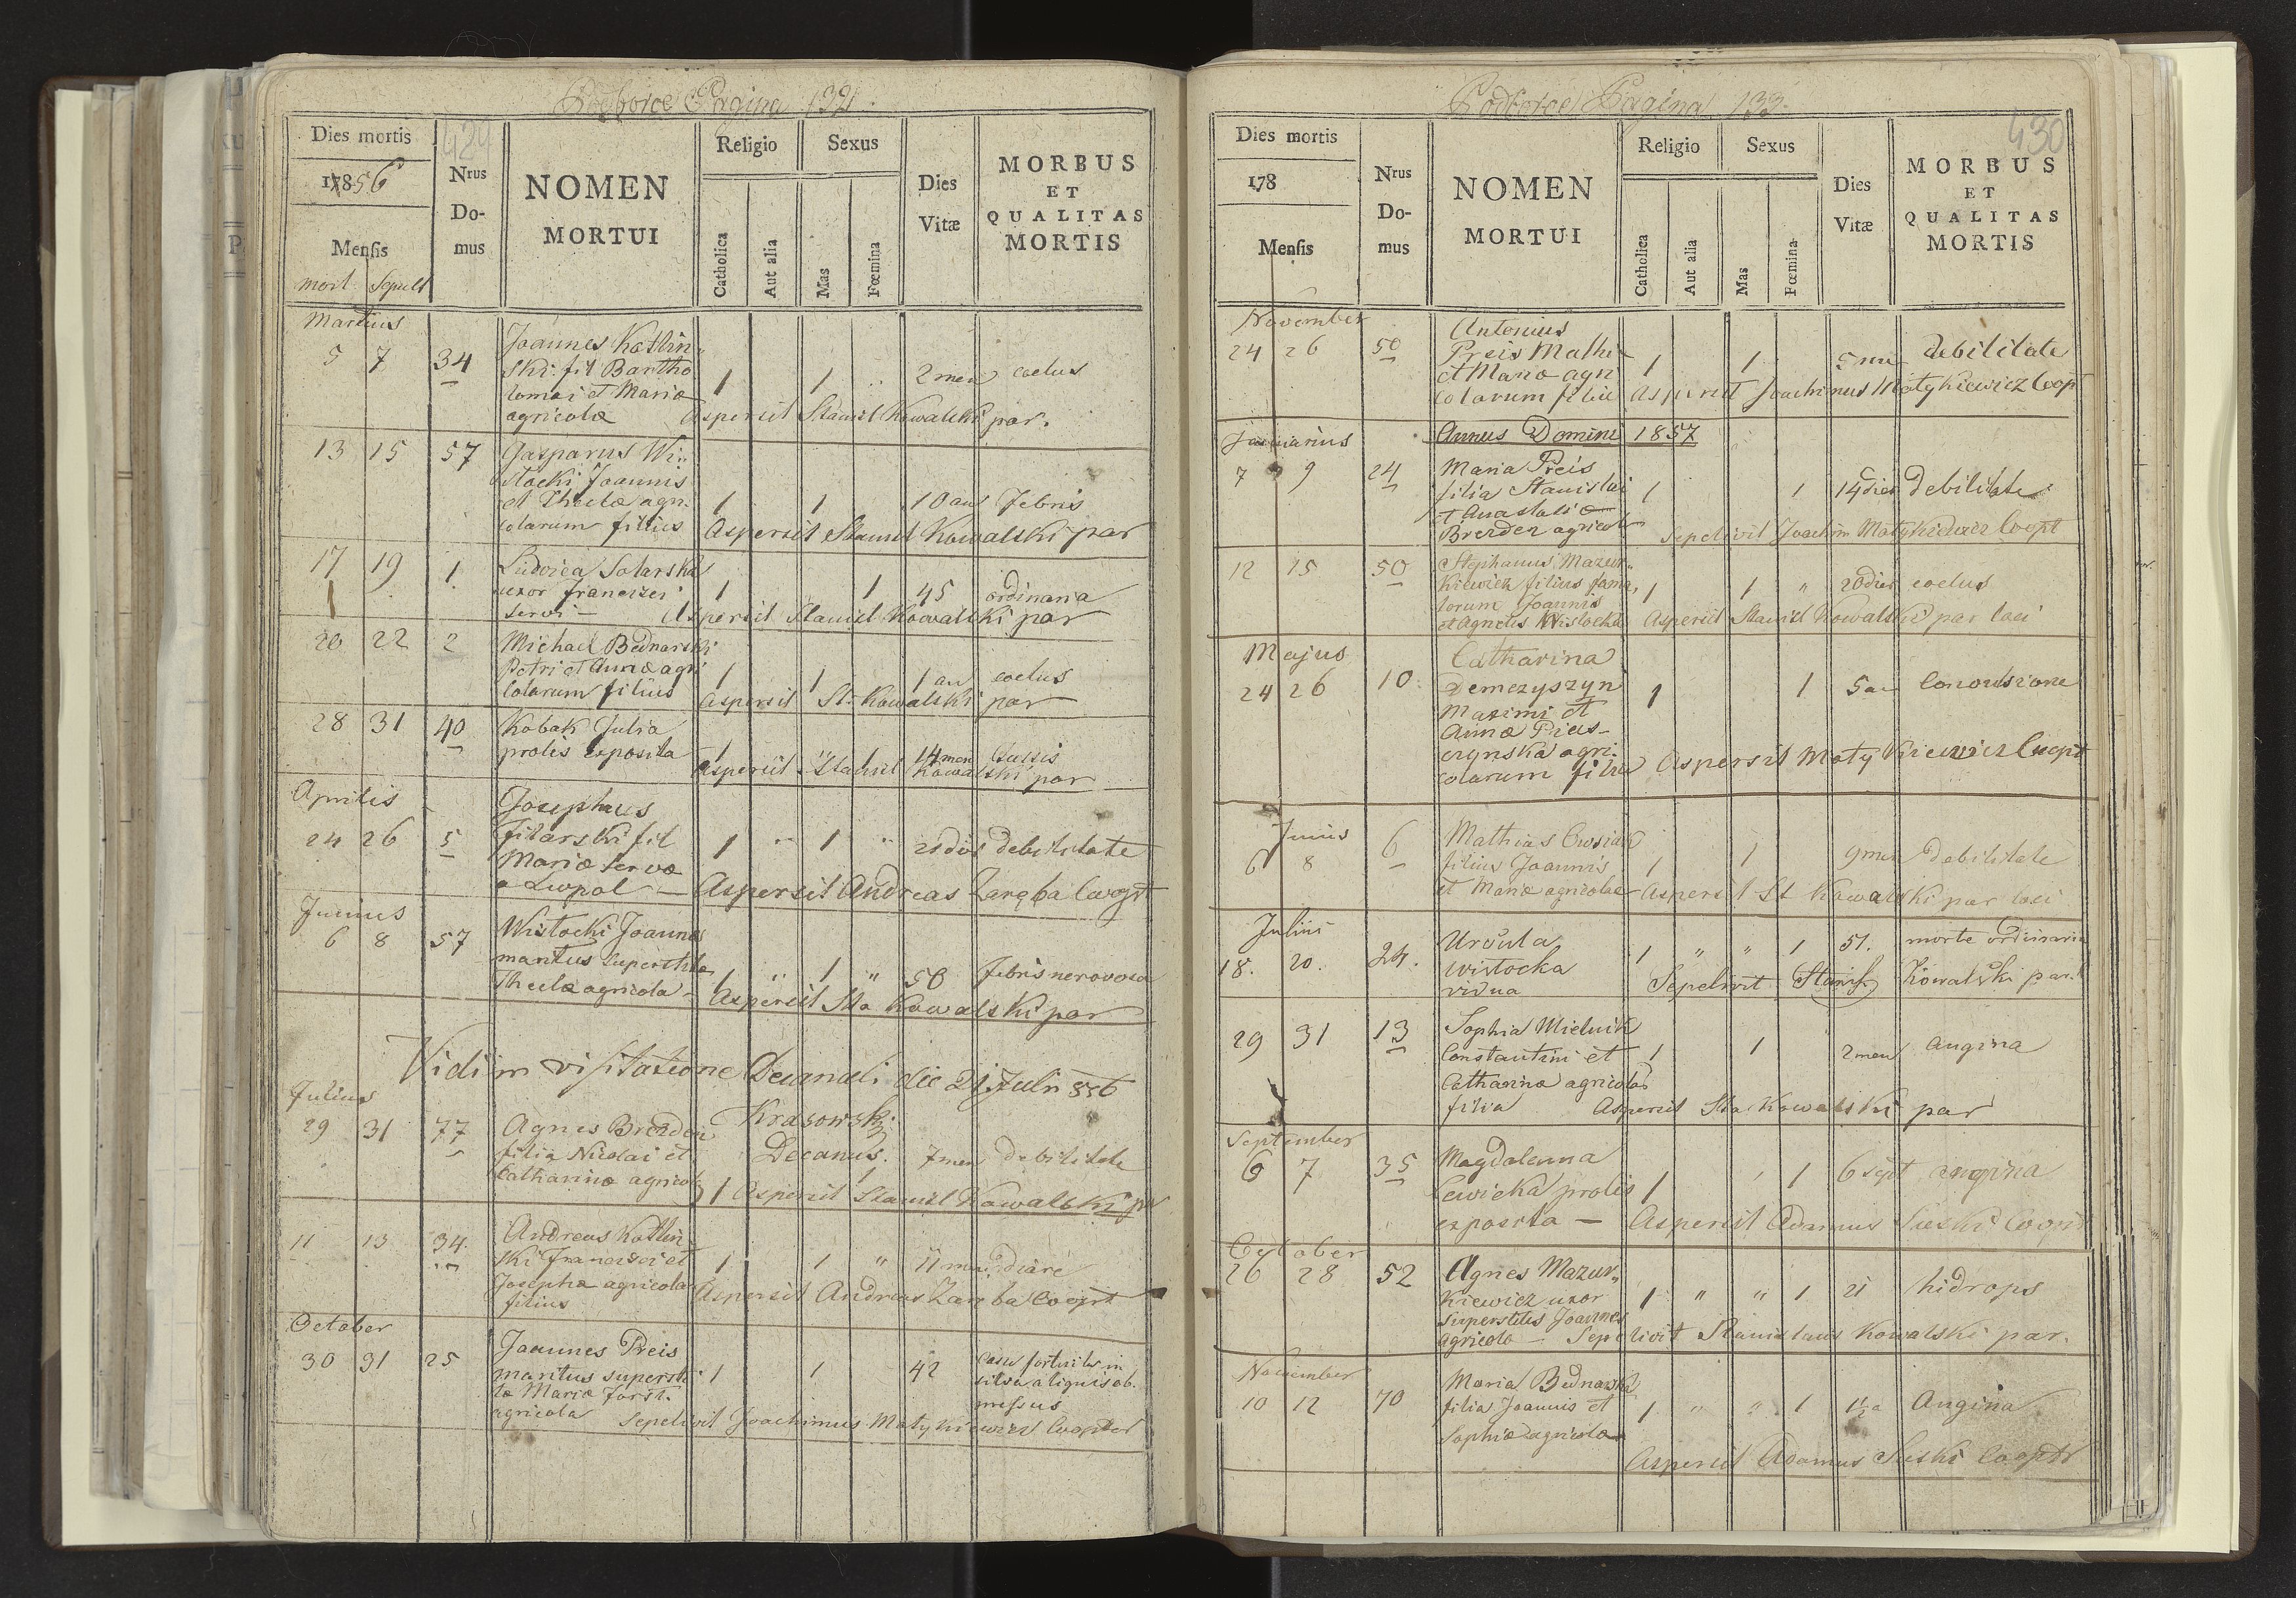 Podborce Pagina 132.
429
Dies mortis
178 56
Mensis
mort Sepult
Nrus Do-mus
NOMEN MORTUI
Religio
Catholica
Aut alia
Sexus
Mas
Fœmina
Dies Vitæ
MORBUS ET QUALITAS MORTIS
Martius
5 7 34 Joannes Kotlin
ski fil Bartho
lomei et Maria 1 1 2 men coelus
agricola Aspersit Stanisl Kowalski par.
13 15 57 Gasparus Wi
stocki Joannis
et Thecla agri 1 1 10 an febris
colarum filius Aspersit Stanisl Kowalski par
17 19 1 Ludvica Solarska
uxor francizci 1 1 45 ordinaria
servi — Aspersit Stanisl Kowalski par
20 22 2 Michael Bednarski
Petri et Anna agri 1 1 1 an coelus
colarum filius Aspersit St. Kowalski par
28 31 40 Kobak Julia
prolis exposita 1 14 men tussis
Aspersit Stanisl Kowalski par
Aprilis
24 26 5 Josephus
filarski fil 1 " 1 " debilitate
Maria serva
a Lwpol — Aspersit Andreas Zaręba Coopt
Junius
6 8 57 Wistocki Joannes
maritus superstita 1 " 1 " 50 febris nervosa
Thecla agricola - Aspersit Sta Kowalski par
Vidi in visitatione Decanali die 21 Julii 856
Krasowski
Decanus.
Julius
29 31 77 Agnes Brezden
filia Nicolai et 7 men debilitate
Catharina agricol 1 1 Aspersit Stanisl Kowalski par
11 13 34. Andreas Kotlin
ski francisci et 1 1 " 11 men diare
Josepha agricola Aspersit Andreas Zareba Coopt
filius
October
30 31 25 Joannes Preis
maritus supersti 1 1 42 casu fortuito in
ta Maria Forst. silva a lignis ob.
agricola messus
Sepelivit Joachimus Matykiewicz Coopter
Podborce Pagina 133.
430
Dies mortis
178
Mensis
Nrus Do-mus
NOMEN MORTUI
Religio
Catholica
Aut alia
Sexus
Mas
Fœmina
Dies Vitæ
MORBUS ET QUALITAS MORTIS
November
24 26 50 Antonius
Preis Mathi 1 1 5 debilitate
et Maria agri
colarum filius Aspersit Joachimus Matykiewicz Coopt
Januarius Annus Domini 1857
7 9 24 Maria Preis
filia Stanislai 1 1 14 dies debilitate
et Anastasia
Brezden agricol Sepelivit Joachim Matykiewicz Coopt
12 15 50 Stephanus Mazur
kiewicz filius fama 1 1 " 20 dies coelus
lorum Joannis
et Agnetis Wislocka Aspersit Stanisl Kowalski par loci
Majus
24 26 10 Catharina
Demczyszyn 1 1 5 an
Maximi et
Anna Pias
czynska agri
colarum filia Aspersit Matykiewicz Coopt
Junius
6 8 6 Mathias Owsiak
filius Joannis 1 1 9 men debilitate
et Maria agricolae Aspersit St Kowalski par loci
Julius
18. 20. 24. Ursula
wistocka 1 " " 1 51. morte ordinaria
vidua Sepelivit Stanisl. Kowalski par.
29 31 13 Sophia Mielnik
Constantini et 1 1 2 men angina
Catharina agricolas
filia Aspersit Sta Kowalski par
September
6 7 35 Magdalenna
Lewicka prolis 1 1 6 sept angina
exposita — Aspersit Adamus Suski Coopt
October
26 28 52 Agnes Mazur
kiewicz uxor 1 " " 1 21 hidrops
superstites Joannes
agricola — Sepelivit Stanislaus Kowalski par.
November
10 12 70 Maria Bednarska
filia Joannis et 1 " " 1 Angina
Sophia agricola
Aspersit Adamus Suski Coopt